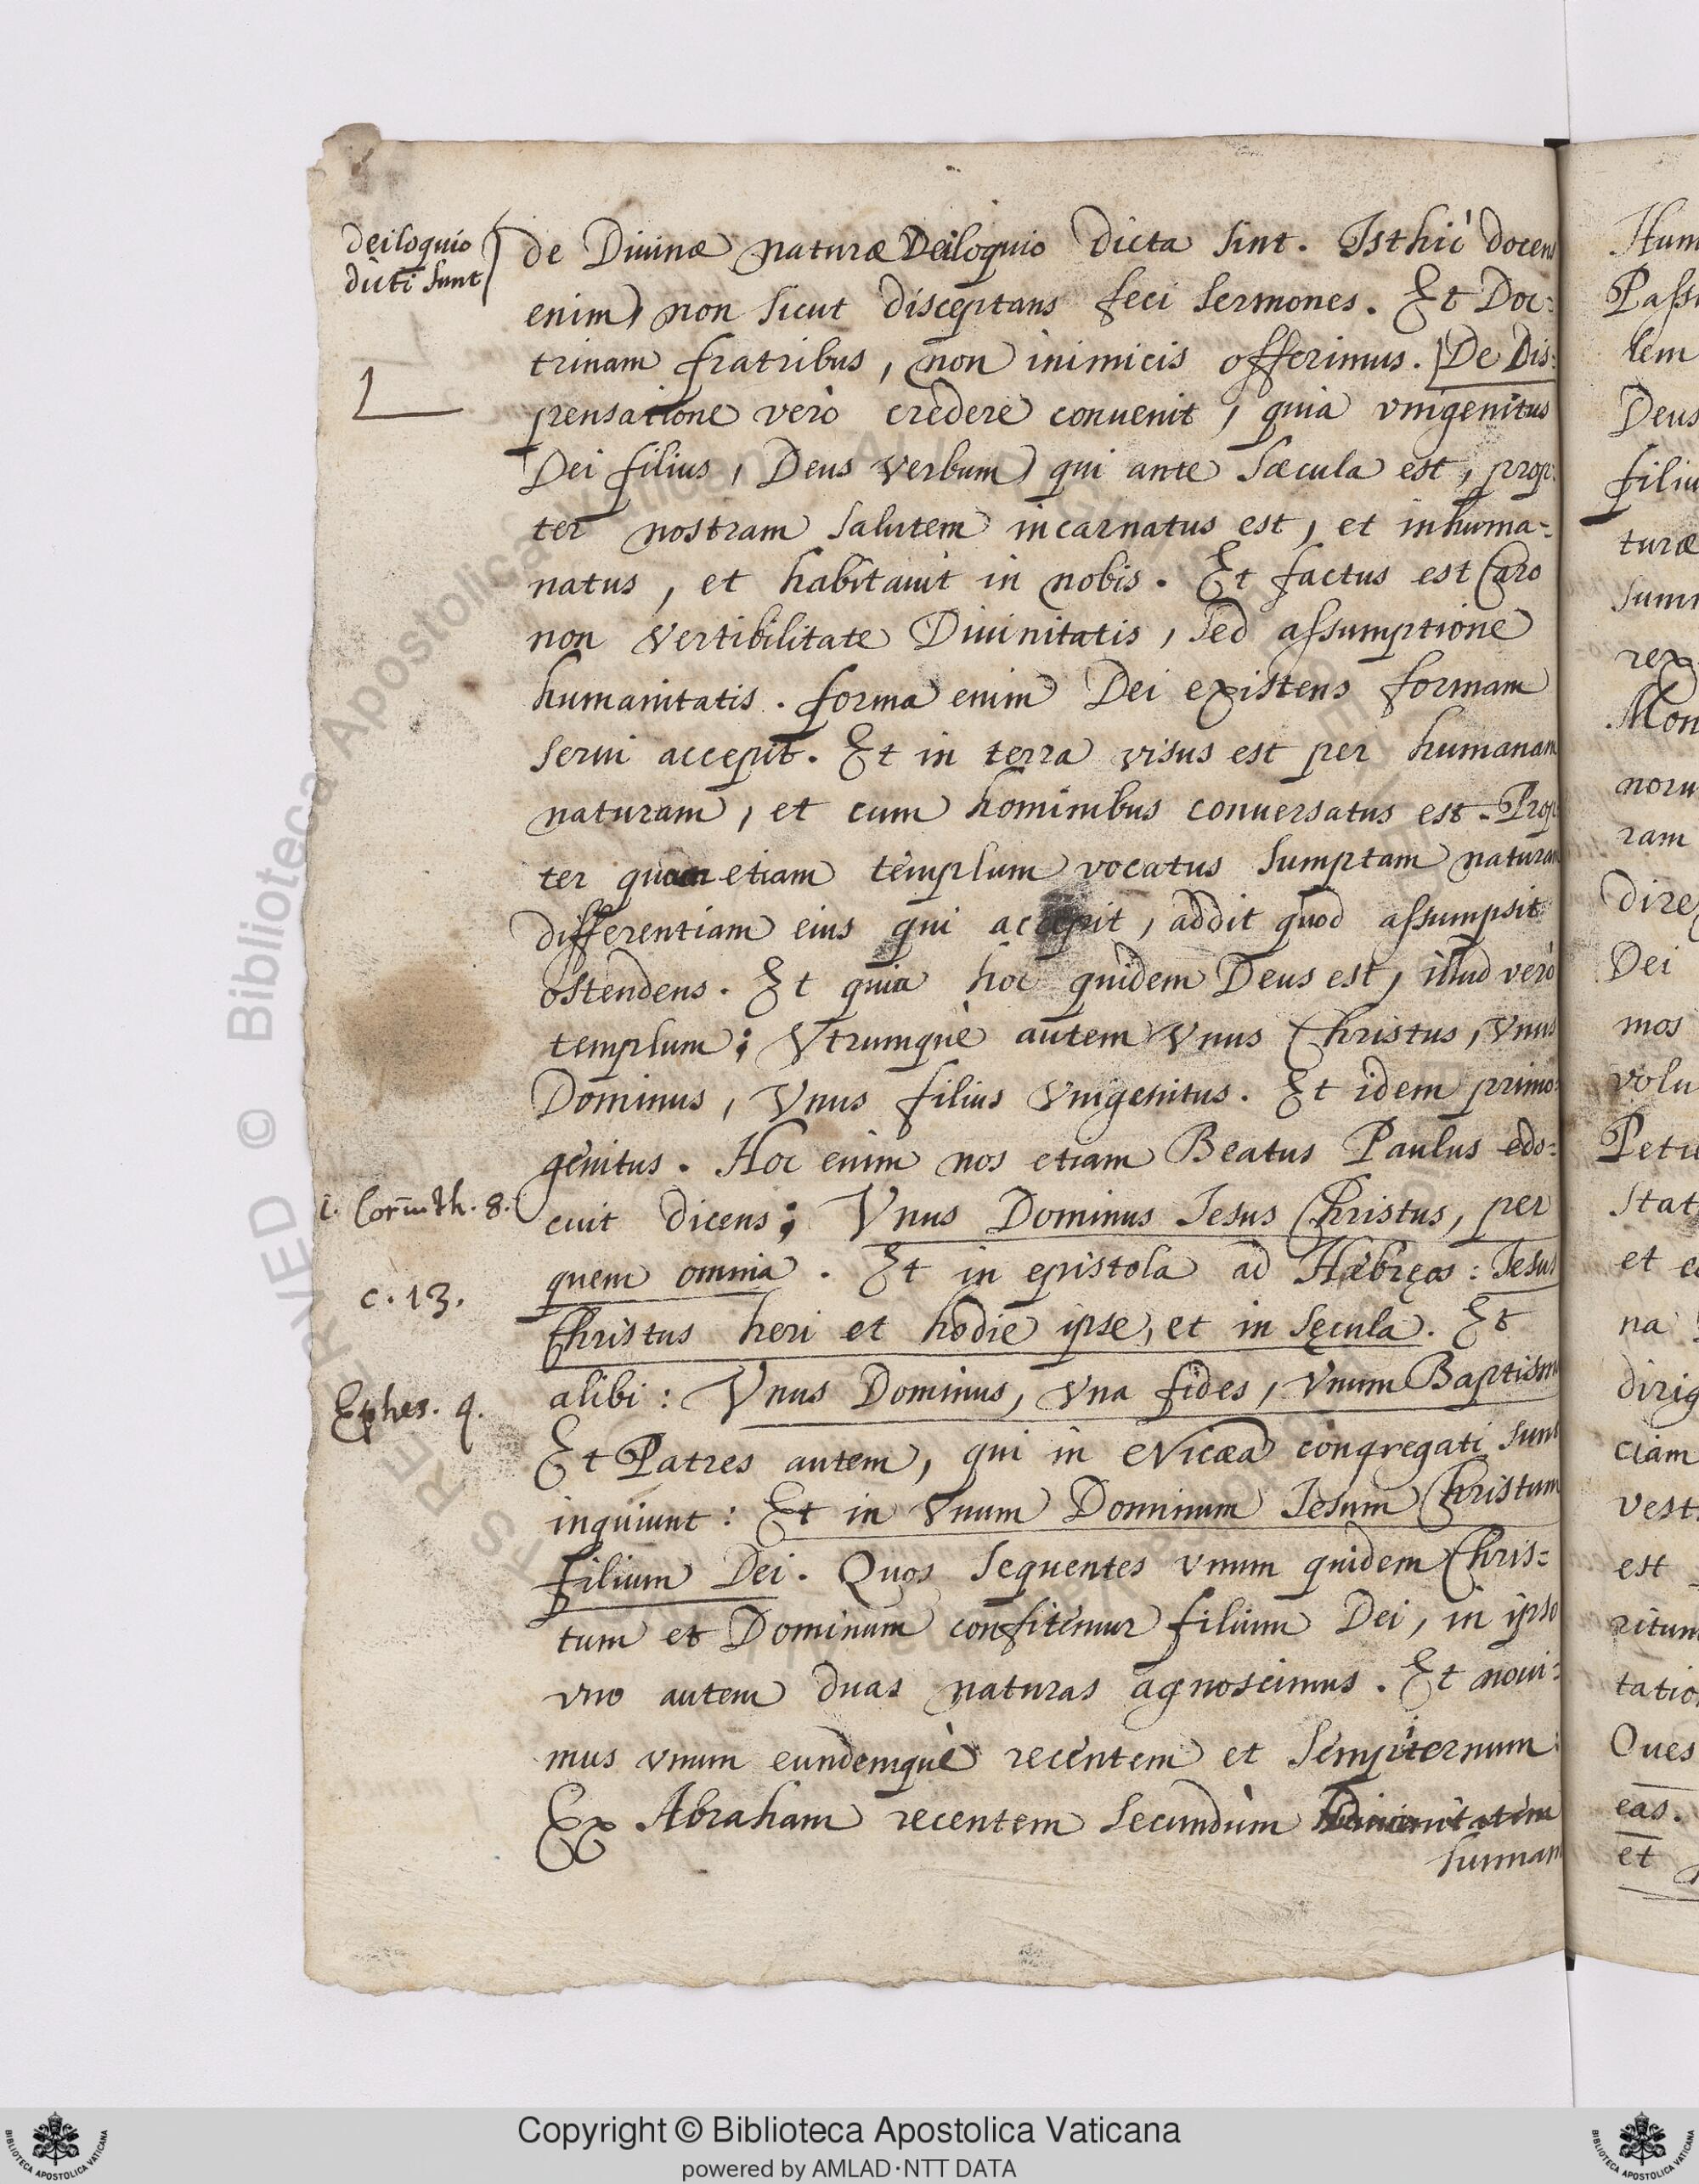 deiloquio
dicti sunt
de Diuinæ naturæ Deiloquio dicta sint. Isthic docens
enim non sicut disceptans feci sermones. Et Doc:
trinam fratribus, non inimicis offerimus. De Dis:
pensatione verò credere conuenit, quia vnigenitus
Dei filius, Deus verbum qui ante sæcula est, prop:
ter nostram salutem incarnatus est, et inhuma:
natus, et habitauit in nobis. Et factus est Caro
non vertibilitate Diuinitatis, sed assumptione
humanitatis. forma enim Dei existens formam
serui accepit. Et in terra visus est per humanam
naturam, et cum hominibus conuersatus est. Prop
ter etiam templum vocatus sumptam naturam
differentiam eius qui accepit, addit quod assumpsit
ostendens. Et quia hoc quidem Deus est, illud verò
templum; Vtrumquè autem Vnus Christus, Vnus
Dominus, Vnus filius Vnigenitus. Et idem primo:
genitus. Hoc enim nos etiam Beatus Paulus edo:
1. Corinth. 8.
cuit dicens; Vnus Dominus Iesus Christus, per
quem omnia. Et in epistola ad Hæbręos: Iesus
c. 13.
Christus heri et hodie ipse, et in sęcula. Et
Ephes. 4.
alibi: Vnus Dominus, Vna fides, Vnum Baptism
Et Patres autem, qui in Nicæa congregati sunt
inquiunt: Et in Vnum Dominum Iesum Christum
filium Dei. Quos sequentes vnum quidem Chris:
tum et Dominum confitemur filium Dei, in ipso
vno autem duas naturas agnoscimus. Et noui:
mus vnum eundemquè recentem et sempiternum:
Ex Abraham recentem secundùm
human
Hum
Pass
lem
Deus
filiu
turæ
sum
rex
Mon
noru
ram
dire
Dei
mos
volu
Petu
stat
et e
na
dirig
ciam
vest
est
ritum
tatio
Ques
eas.
et
RESERVED © Biblioteca Apostolica Vaticana
Copyright © Biblioteca Apostolica Vaticana
powered by AMLAD·NTT DATA
BIBLIOTECA APOSTOLICA VATICANA
BIBLIOTECA APOSTOLICA VATICANA